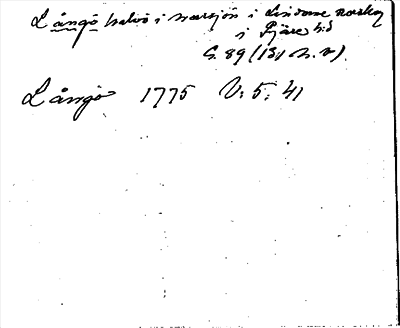 Långö halvö i marsjön i Lindome socken
i Fjäre hd
G. 89 (131 n. v).
Långö 1775 V: 5: 41